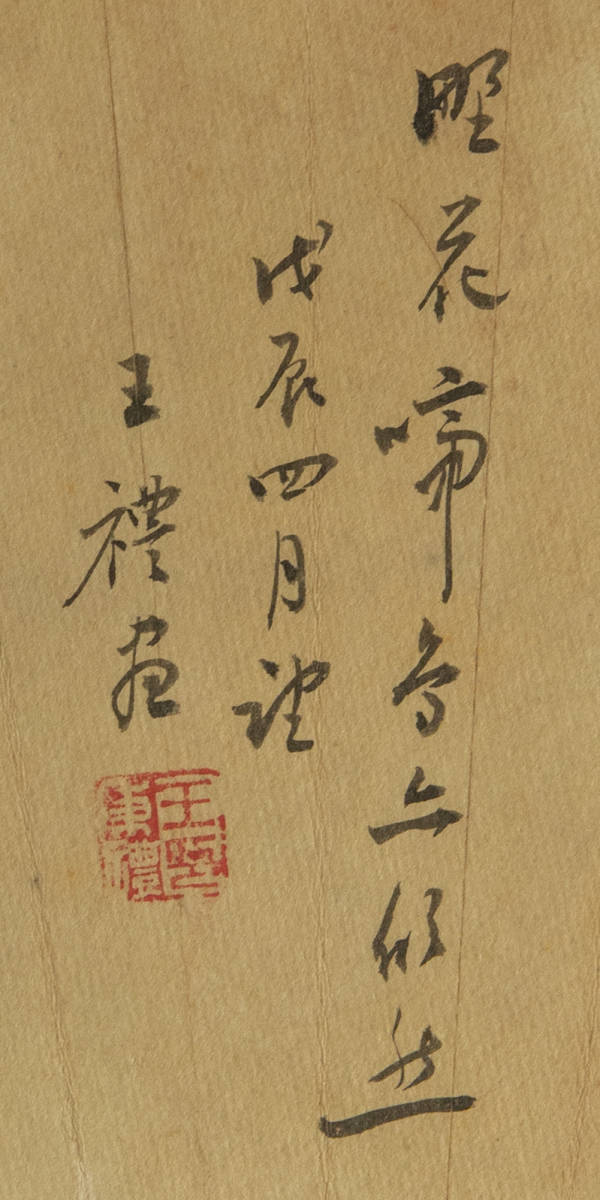 野花啼鳥亦欣然
戊辰四月望
王禮畫
王印秉禮